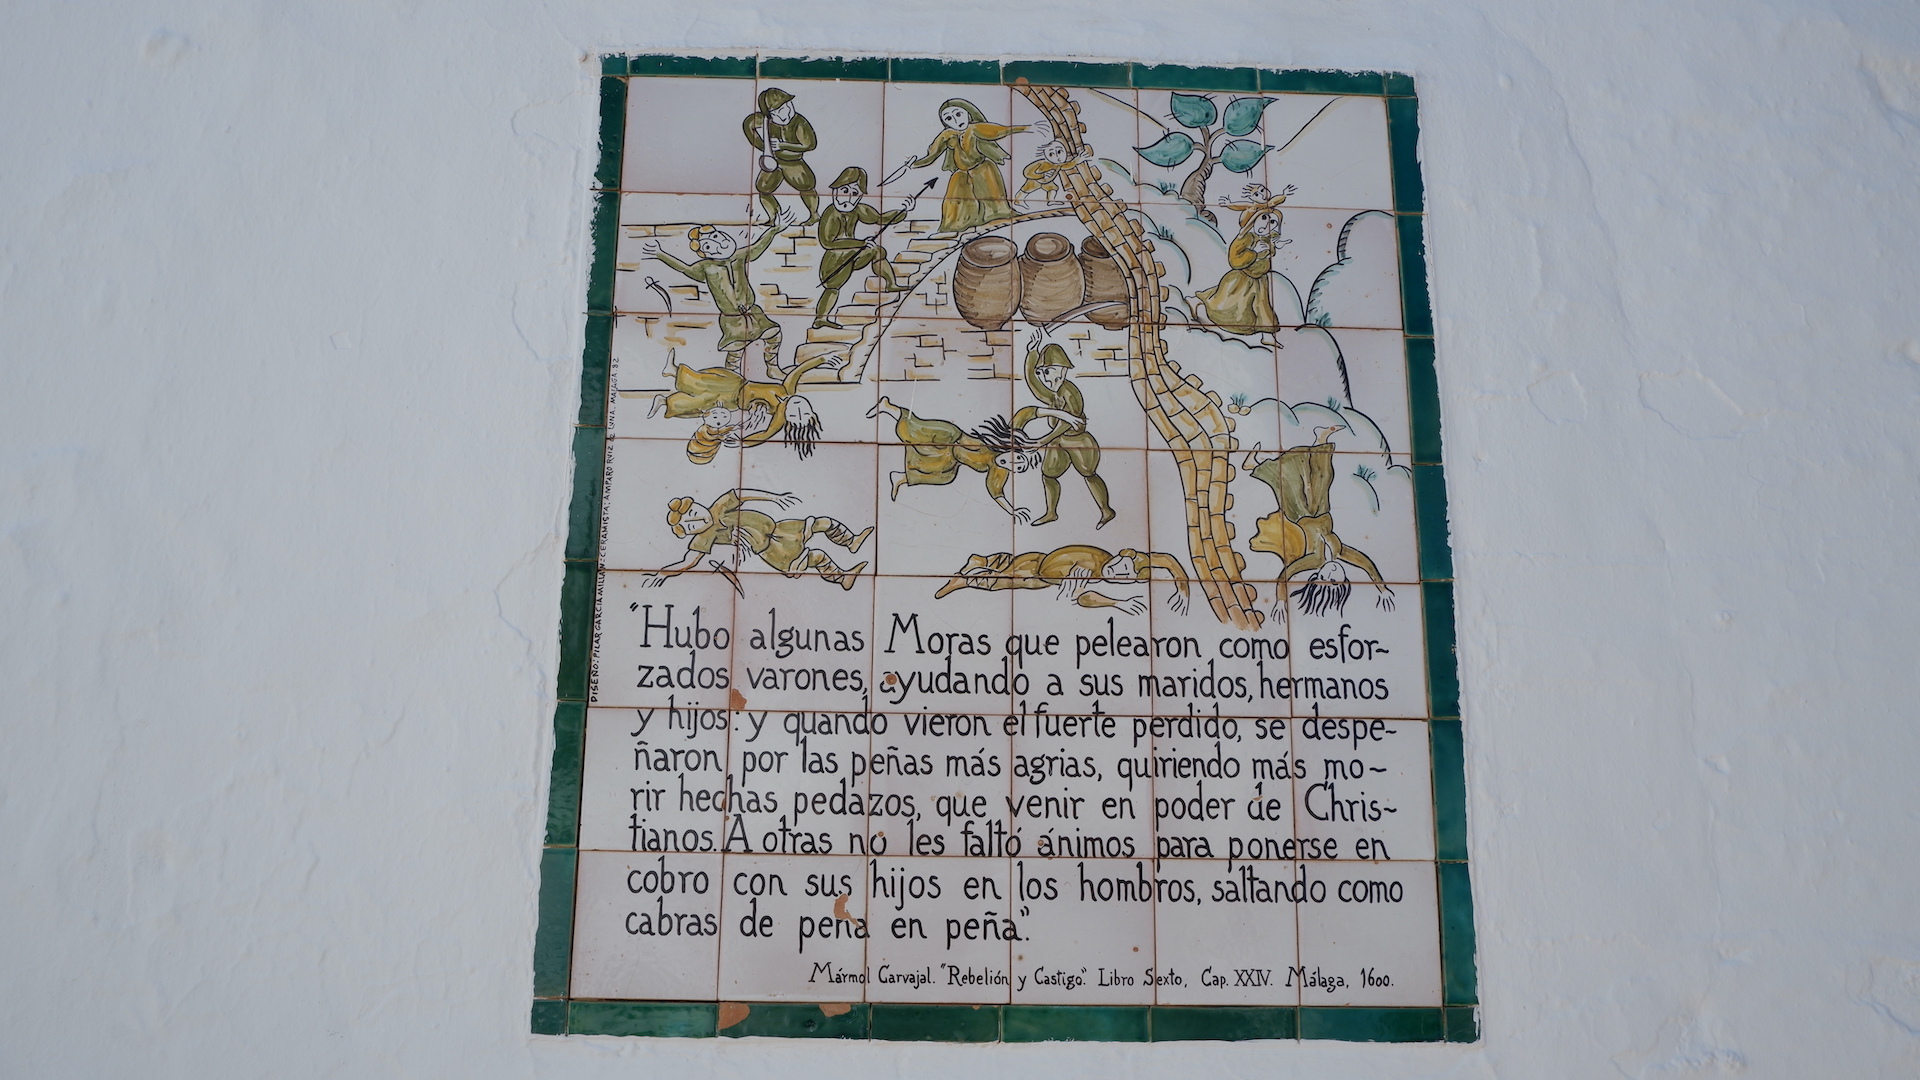 "Hubo algunas Moras que pelearon como esfor-
zados varones, ayudando a sus maridos, hermanos
y hijos: y quando vieron el fuerte perdido, se despe-
ñaron por las peñas más agrias, quiriendo más mo-
rir hechas pedazos, que venir en poder de Chris-
tianos. A otras no les faltó ánimos para ponerse en
cobro con sus hijos en los hombros, saltando como
cabras de peña en peña".
Mármol Carvajal. "Rebelión y Castigo". Libro Sexto, Cap. XXIV. Málaga, 1600.
DISEÑO: PILAR GARCIA MILLAN: CERAMISTA: AMPARO RUIZ DE LUNA. MALAGA 82